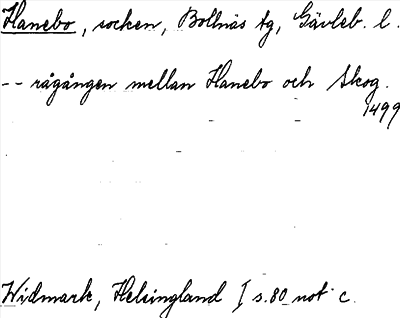 Hanebo, socken, Bollnäs tg, Gävleb. l.
-- rågången mellan Hanebo och Skog.
1499
Widmark, Helsingland I s. 80 not c.